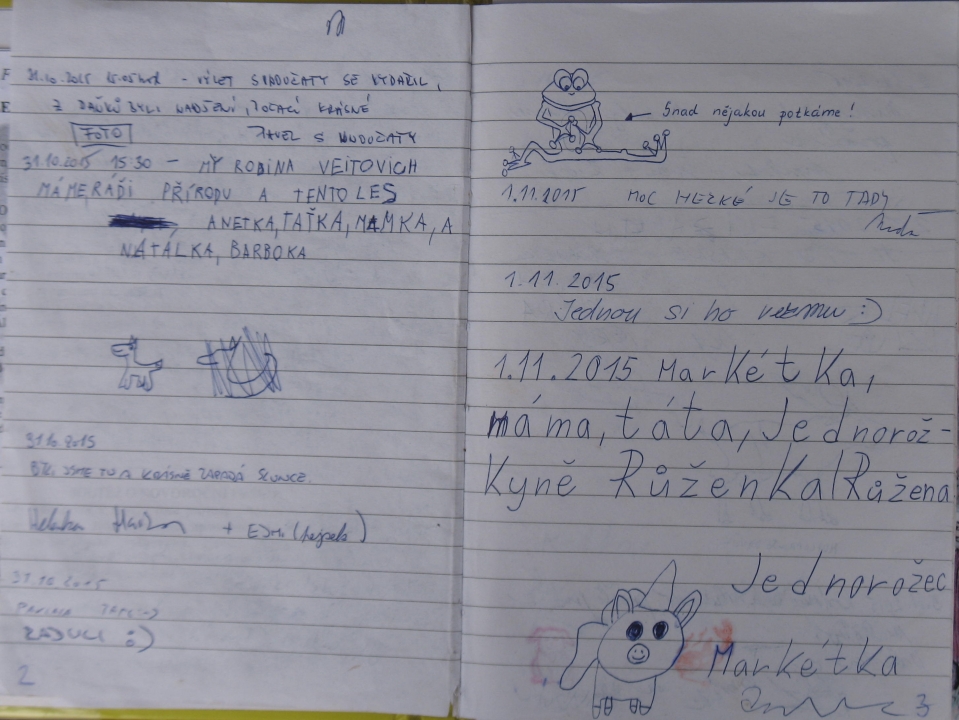 31.10.2015 15.05 hod - VÝLET S MUDOČATY SE VYDAŘIL,
BYLI NADŠENÍ, POČASÍ KRÁSNÉ
FOTO PAVEL S MUDOČATY
31.10.2015 15:30 - MY RODINA VEITOVICH
MÁME RÁDI PŘÍRODU A TENTO LES
ANETKA, TAŤKA, MAMKA, A
NATÁLKA, BARBOKA
31.10.2015
BYLI JSME TU A KRÁSNĚ ZAPADÁ SLUNCE.
31.10.2015
RADUCI :)
2
Snad nějakou potkáme!
1.11.2015 MOC HEZKÉ JE TO TADY
1.11.2015
Jednou si ho vezmu :)
1.11.2015 Markétka,
máma, táta, Jednorož-
kyně Růženka/Růžena
Jednorožec
Markétka
3